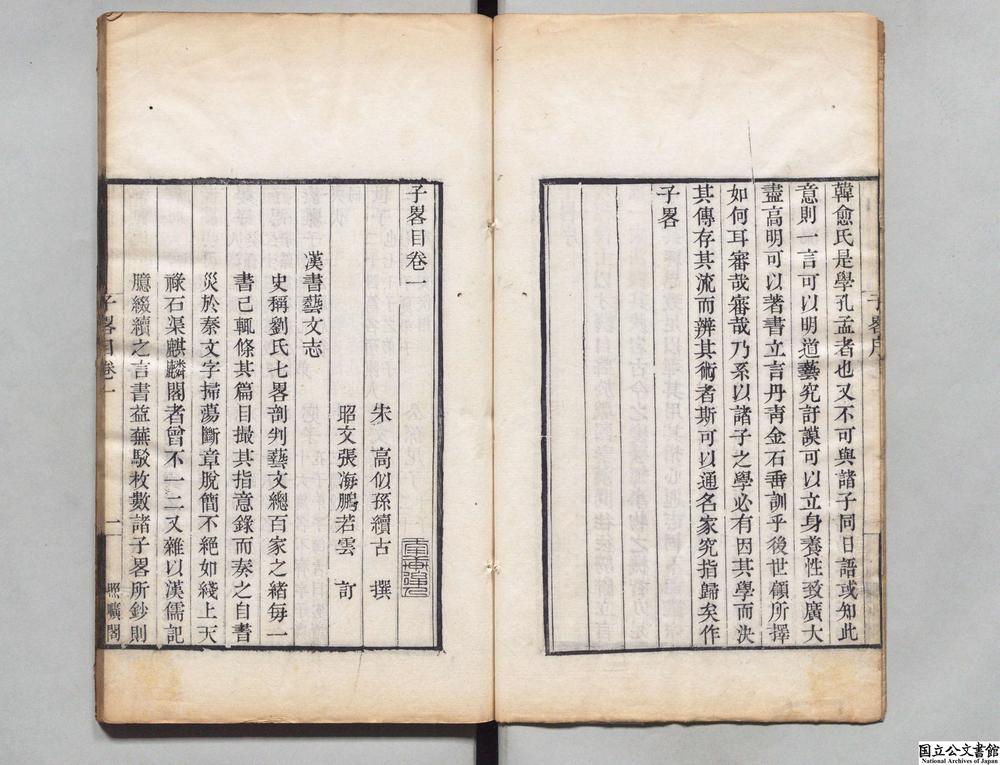 韓愈氏是學孔孟者也又不可與諸子同日語或知此
意則一言可以明道藝究訏謨可以立身養性致廣大
盡高明可以著書立言丹靑金石垂訓乎後世顧所擇
如何耳審哉審哉乃系以諸子之學必有因其學而決
其傳存其流而辨其術者斯可以通名家究指歸矣作
子畧
子畧目卷一
朱 高似孫續古 撰
昭文張海鵬若雲 訂
漢書藝文志
史稱劉氏七畧剖判藝文總百家之緒每一
書已輒條其篇目撮其指意錄而奏之自書
災於秦文字掃蕩斷章脫簡不絕如綫上天
祿石渠麒麟閣者曾不一二又雜以漢儒記
臆綴續之言書益蕪駁枚數諸子畧所鈔則
子畧目卷一
一
照曠閣
国立公文書館
National Archives of Japan